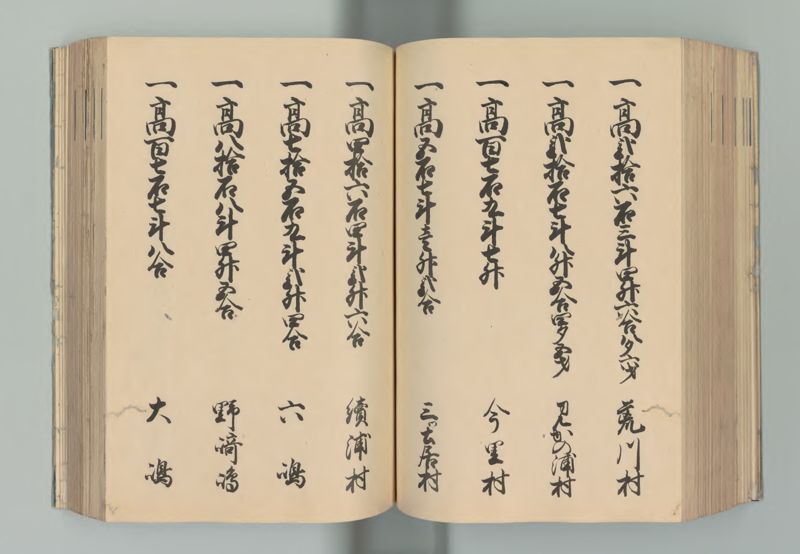 一高弐拾六石三斗四升六合八夕六才 荒川村
一高弐拾石七斗八升五合四夕五才 見かの浦村
一高百七石九斗七升 今里村
一高五石七斗壱升弐合 三ツ土居村
一高四拾六石四斗弐升六合 續浦村
一高七拾五石九斗弐升四合 六嶋
一高八拾石八斗四升五合 野﨑嶋
一高百七石七斗八合 大嶋